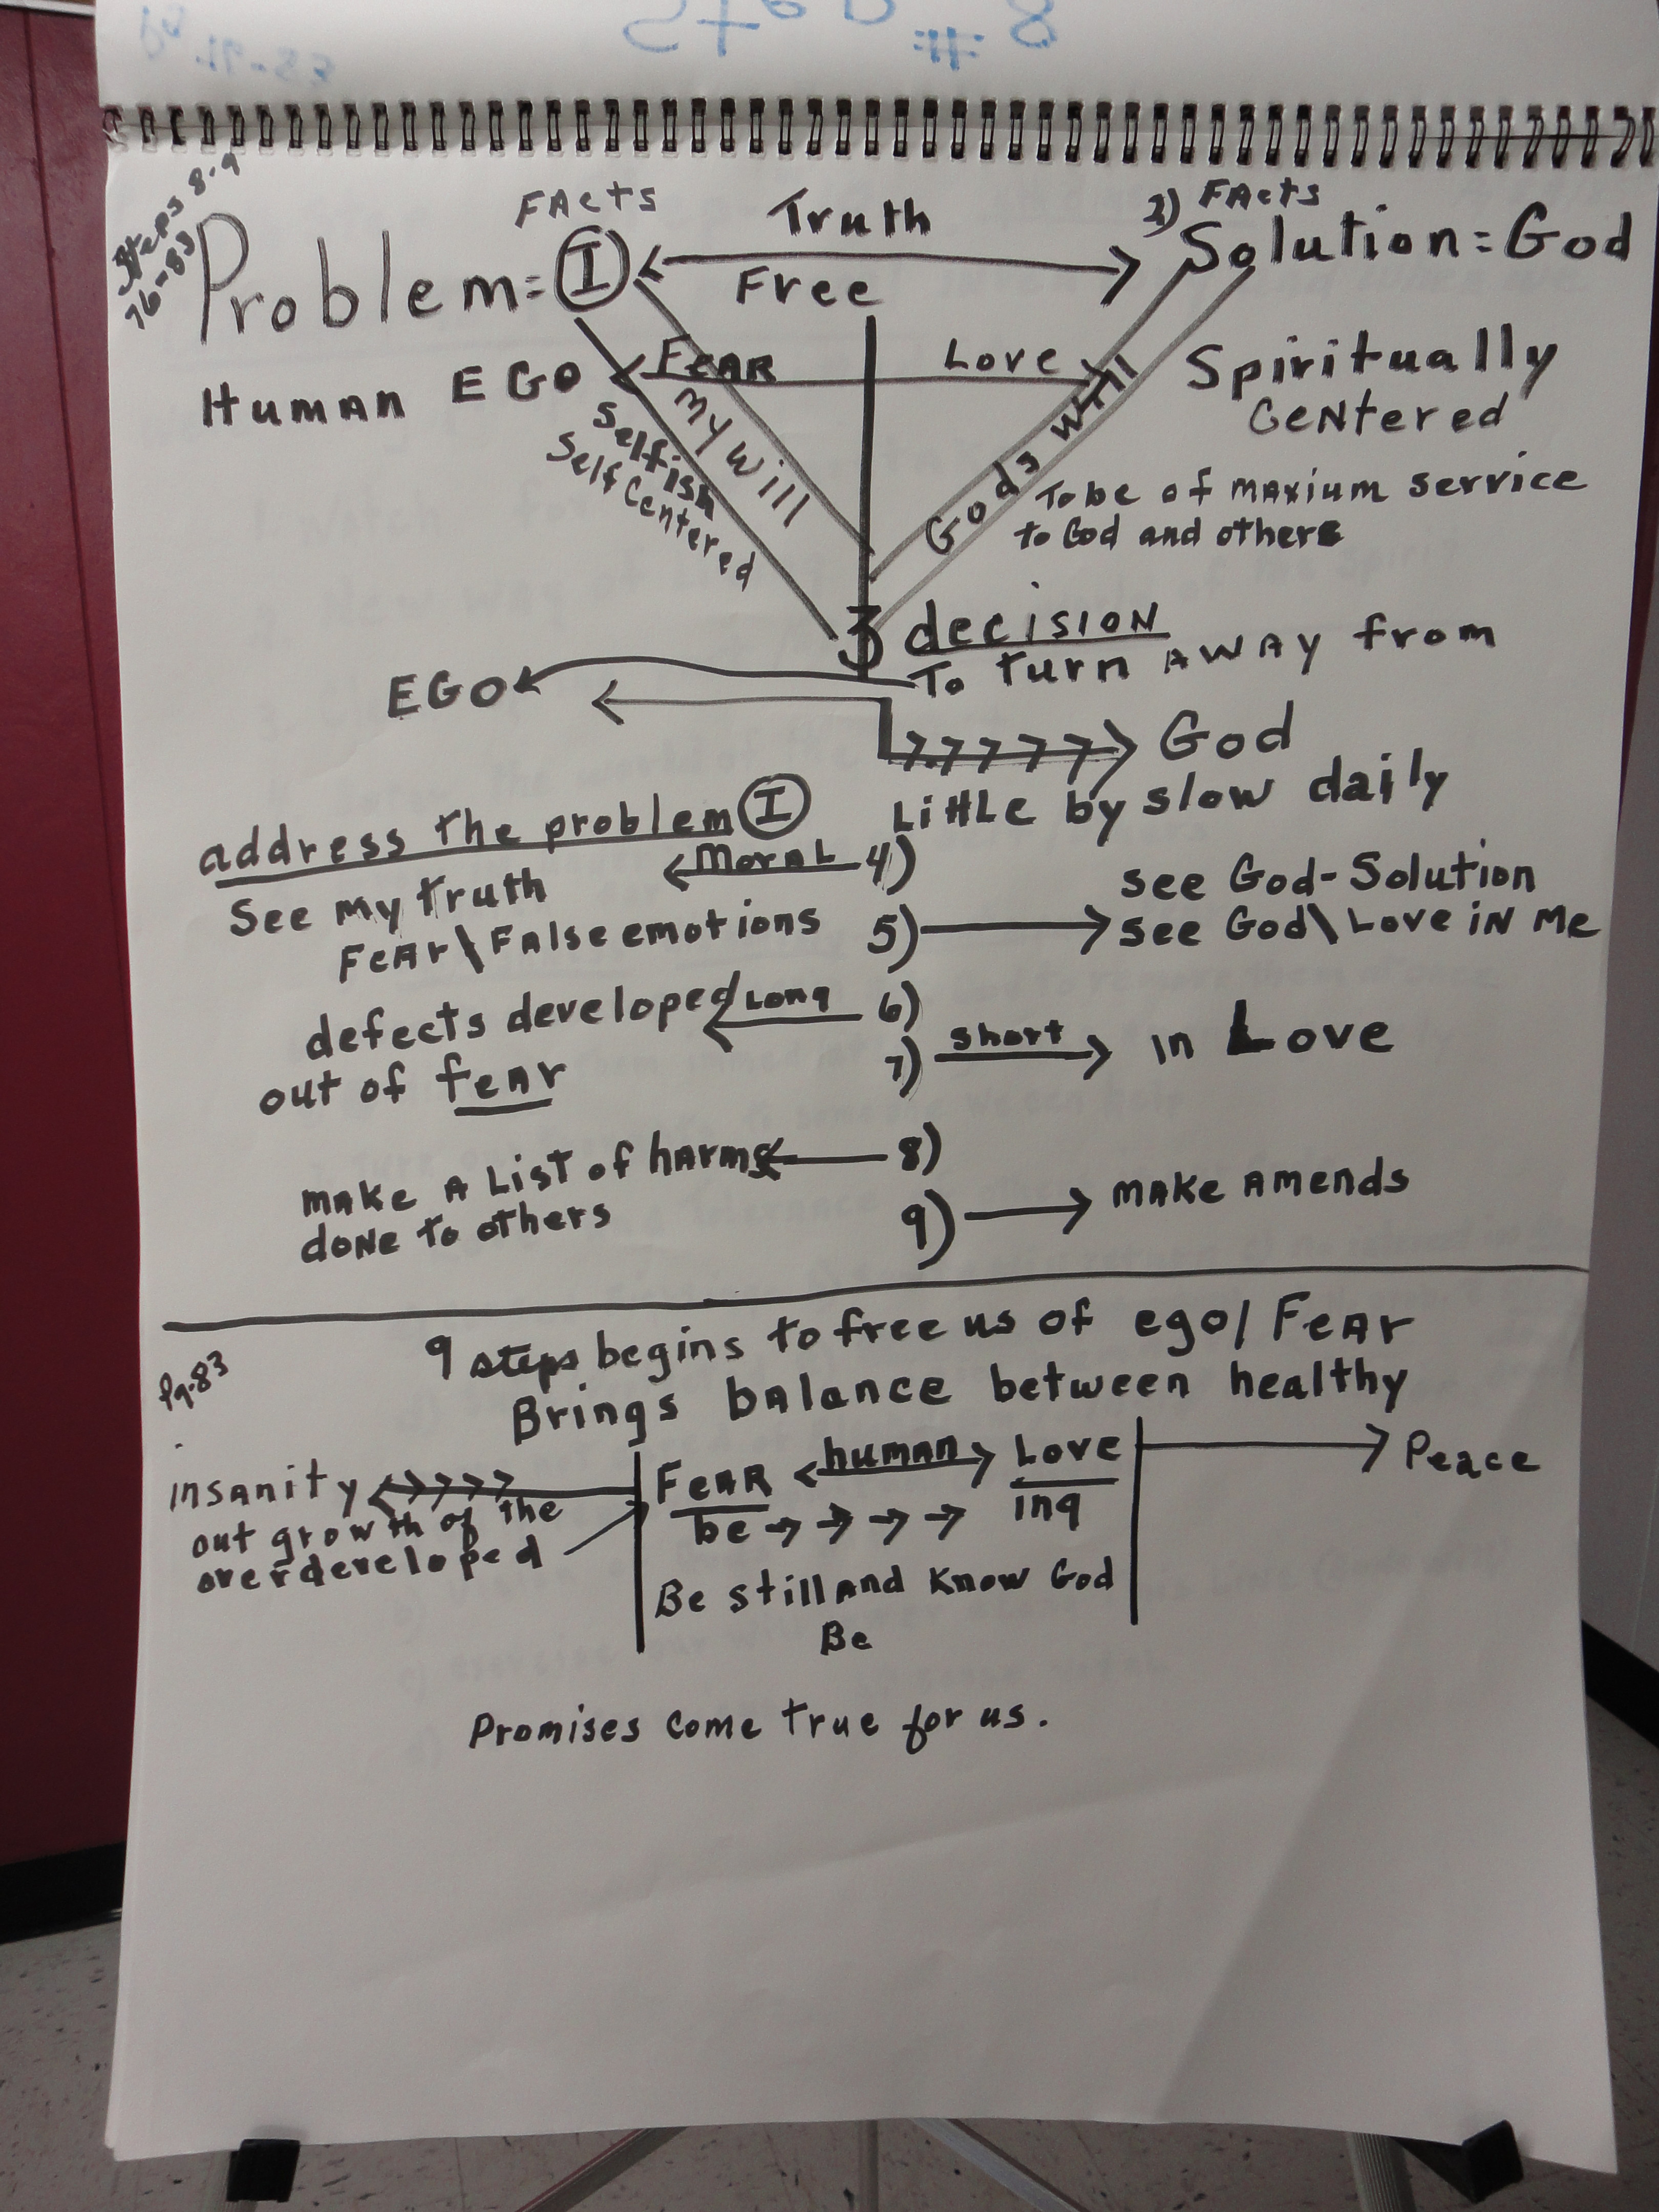 Steps 8-9
76-83
FActs
Truth
2) FActs
Problem = I
Solution = God
Free
Human EGO
FeAR
Love
Spiritually
CeNtered
My will
Gods will
Selfish
Self Centered
To be of maxium service
to God and others
3 decisioN
To turn away from
EGO
God
Little by slow daily
address the problem I
Moral 4)
See my truth
see God-Solution
FeAr\False emotions
5) see God\Love iN Me
defects developed Long 6)
out of feAr
7) short in Love
make a List of harms 8)
doNe to others
9) make amends
9 steps begins to free us of ego/ FeAr
Pg. 83
Brings balance between healthy
insanity
FeAR human Love
Peace
out growth of the
overdeveloped
be ing
Be still and Know God
Be
Promises come true for us.